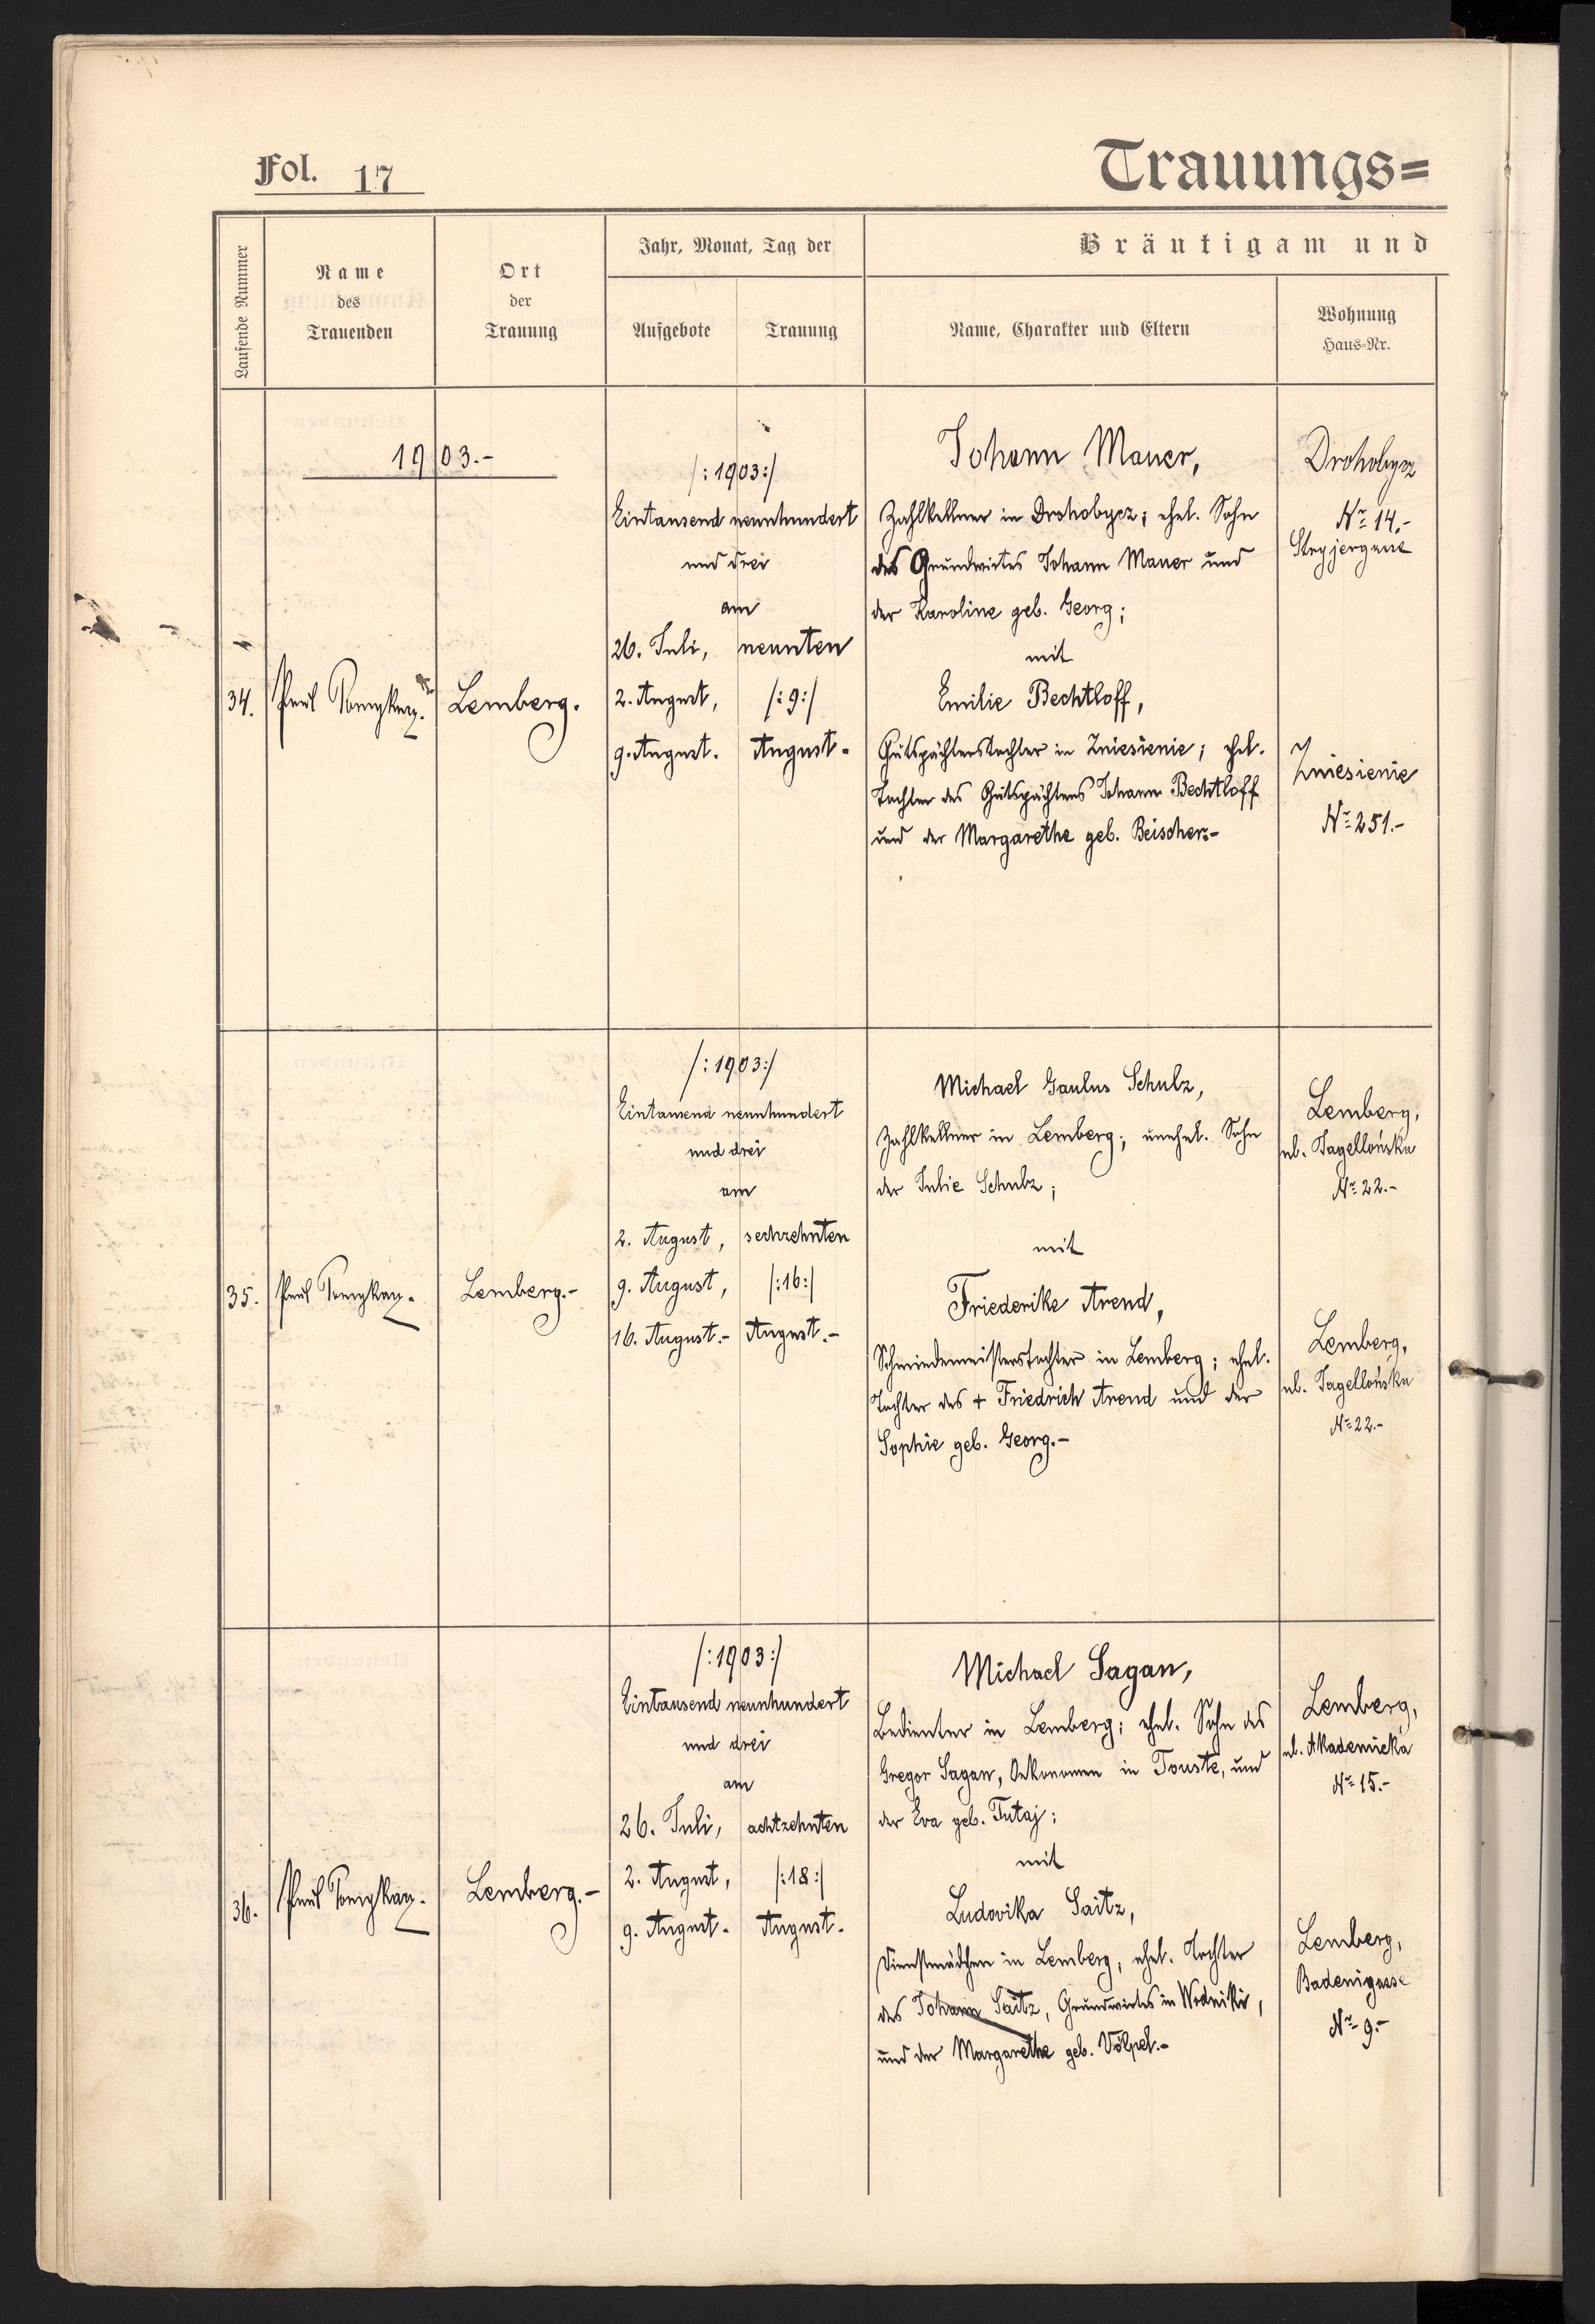 Fol. 17
Trauungs=
Laufende Nummer
Name
des
Trauenden
Ort
der
Trauung
Jahr, Monat, Tag der
Aufgebote
Trauung
Bräutigam und
Name, Charakter und Eltern
Wohnung
Haus-Nr.
1903.-
34.
Lemberg.
/:1903:/
Eintausend neunhundert
und drei
am
26. Juli, neunten
2. August, /:9:/
9. August. August.
Johann Mauer,
Zahlkellner in Drohobycz; ehel. Sohn
des Grundwirtes Johann Mauer und
der Karoline geb. Georg;
mit
Emilie Bechtloff,
Gutspächterstochter in Zniesienie; ehel.
Tochter des Gutspächters Johann Bechtloff
und der Margarethe geb. Beischer.-
Drohobycz
Nr. 14.-
Zniesienie
Nr. 251.-
35.
Lemberg.-
/:1903:/
Eintausend neunhundert
und drei
am
2. August, sechzehnten
9. August, /:16:/
16. August.- August.-
Michael Paulus Schulz,
Zahlkellner in Lemberg; unehel. Sohn
der Julie Schulz;
mit
Friederike Arend,
Schmiedemeisterstochter in Lemberg; ehel.
Tochter des + Friedrich Arend und der
Sophie geb. Georg.-
Lemberg,
ul. Jagellońska
Nr. 22.-
Lemberg,
ul. Jagellońska
Nr. 22.-
36.
Lemberg.-
/:1903:/
Eintausend neunhundert
und drei
am
26. Juli, achtzehnten
2. August, /:18:/
9. August. August.
Michael Sagan,
Bedienter in Lemberg; ehel. Sohn des
Gregor Sagan, Oekonomen in Touste, und
der Eva geb. Tutaj;
mit
Ludovika Saitz,
Dienstmädchen in Lemberg, ehel. Tochter
des Johann Saitz, Grundwirtes in Wodniki,
und der Margarethe geb. Völpel.-
Lemberg,
ul. Akademicka
Nr. 15.-
Lemberg,
Badenigasse
Nr. 9.-